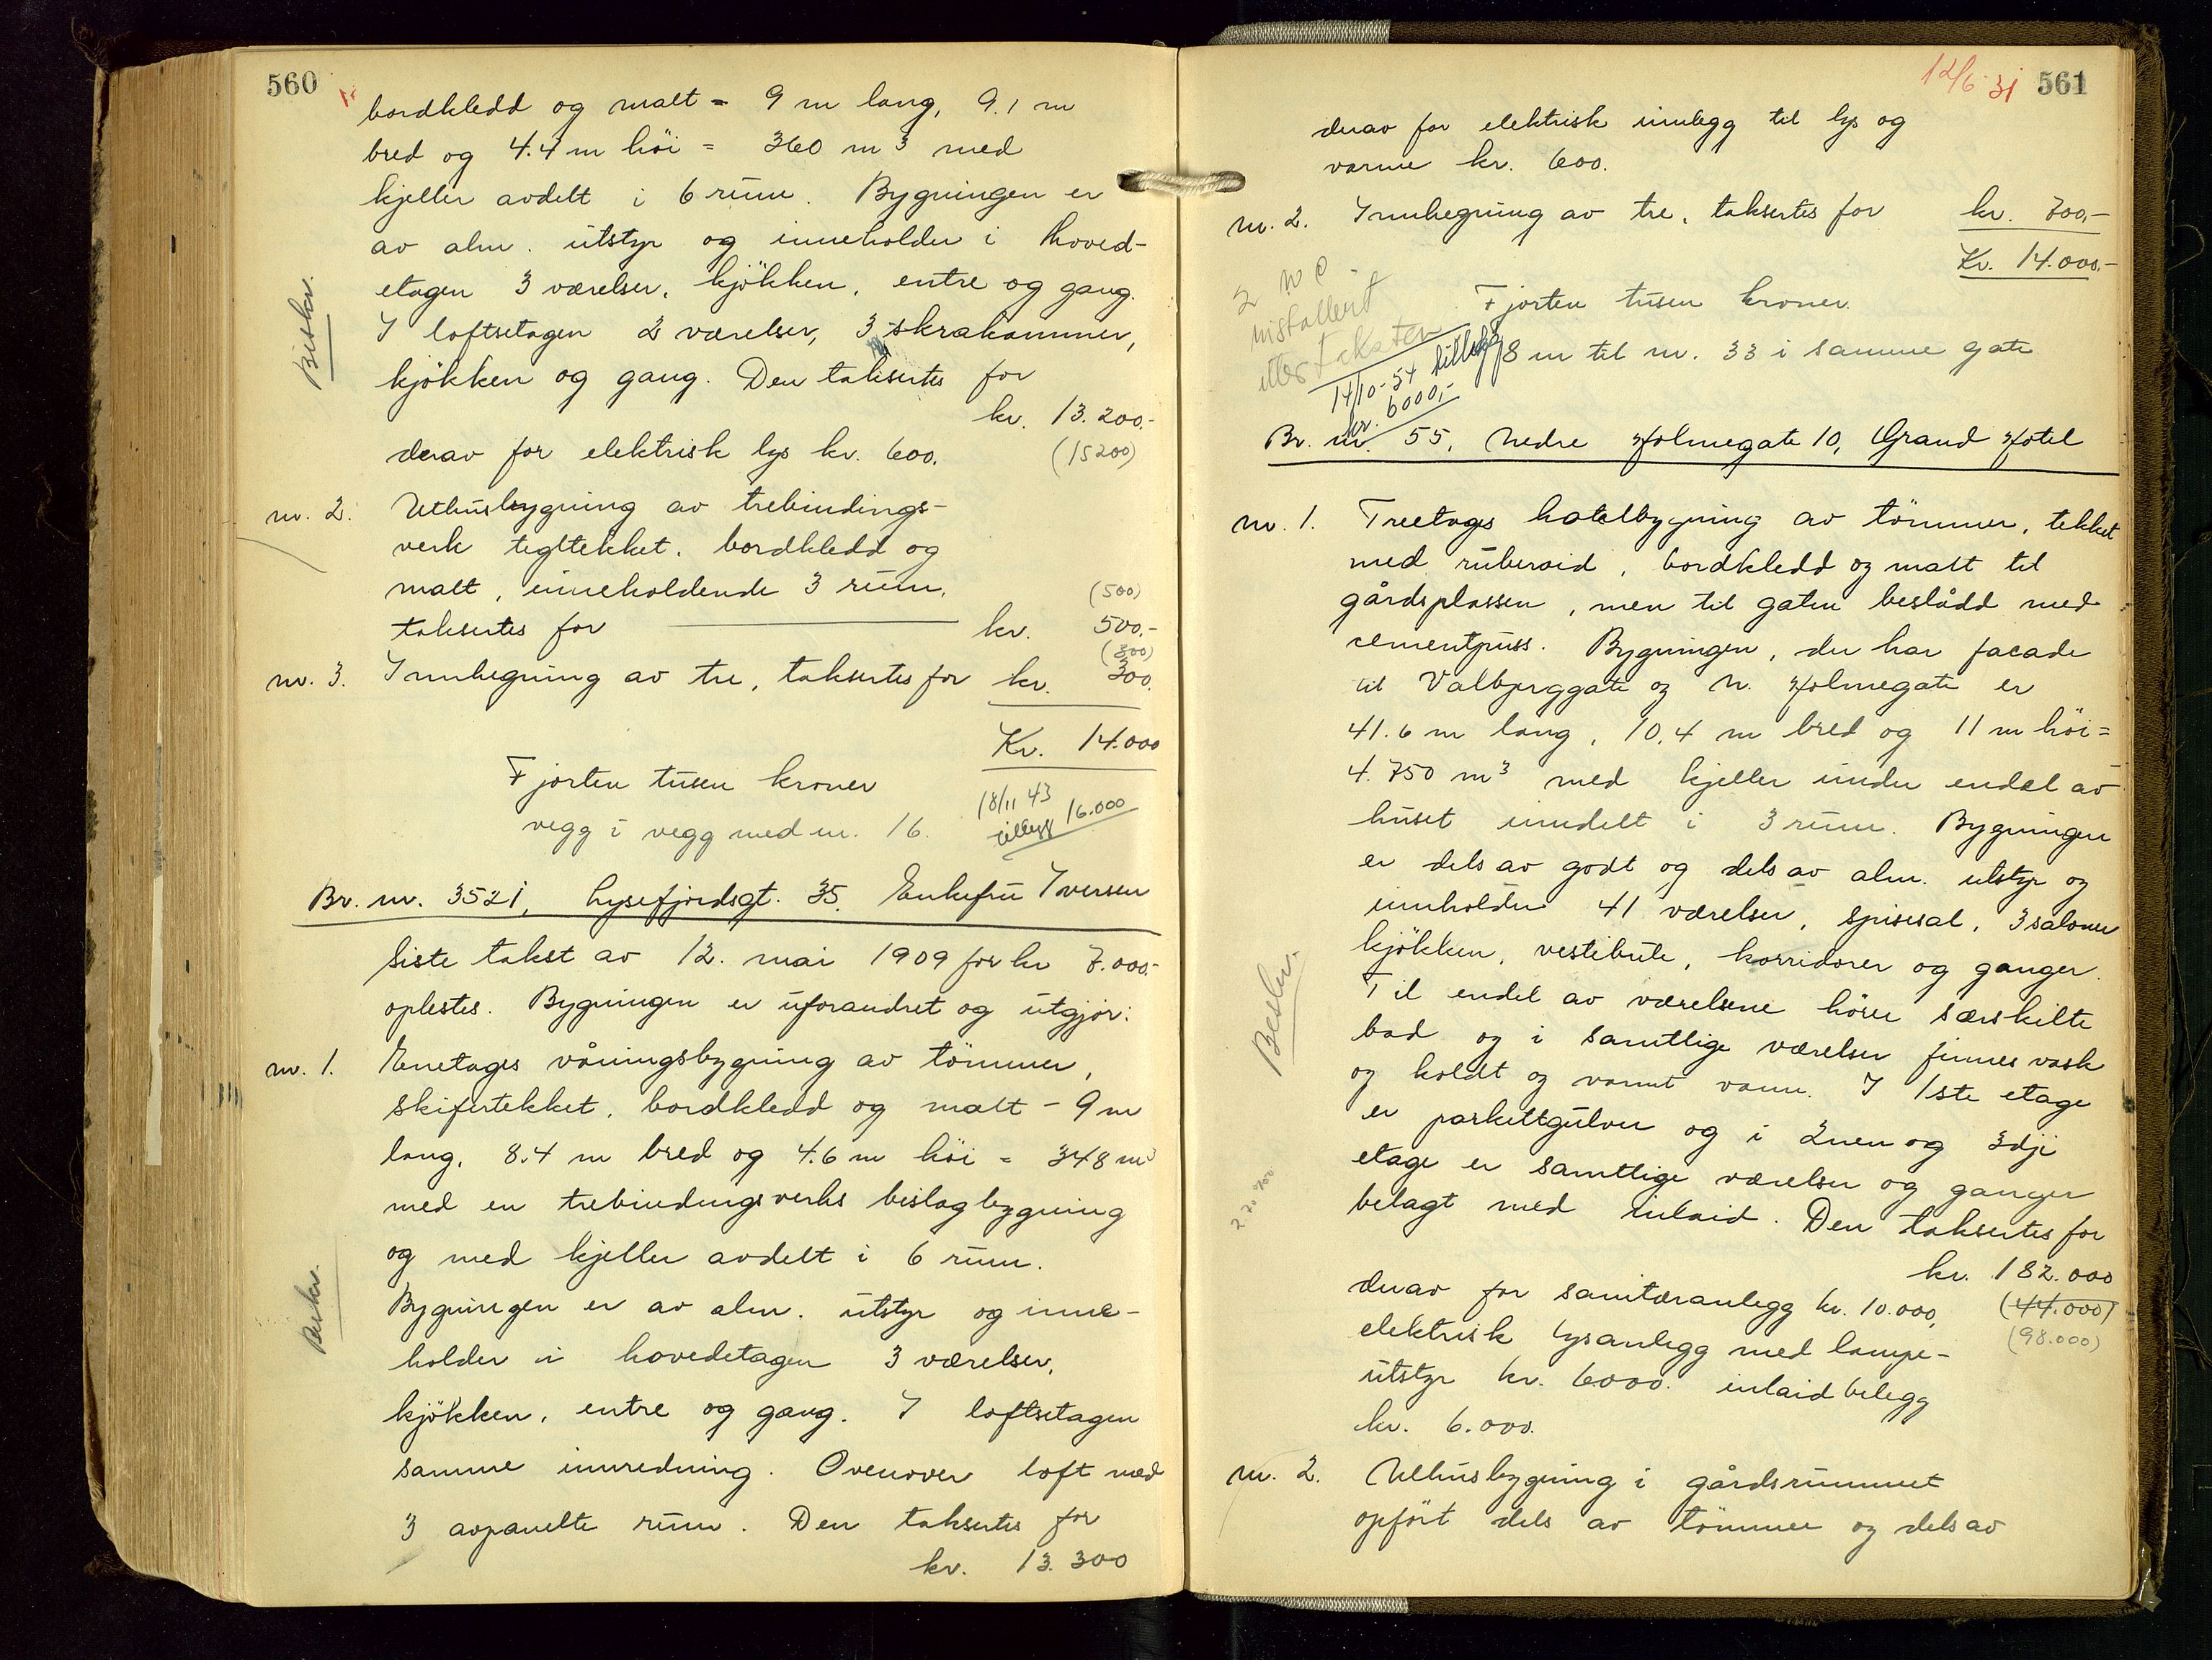 560
bordkledd og malt = 9 m lang, 9.1 m
bred og 4.4 m höi = 360 m3 med
kjeller avdelt i 6 rum. Bygningen er
av alm. utstyr og inneholder i hoved-
etagen 3 værelser, kjökken, entre og gang.
I loftsetagen 2 værelser, 3 skrakammer,
kjökken og gang. Den taksertes for
kr. 13.200.-
derav for elektrisk lys kr. 600. (15200)
Beskr.
nr. 2. Uthusbygning av trebindings-
verk tegltekket, bordkledd og
malt, inneholdende 3 rum,
(500)
taksertes for kr. 500.-
(300)
nr. 3. Innhegning av tre, taksertes for kr. 300.
Kr. 14.000
Fjorten tusen kroner
18/11 43
tillegg 16.000
vegg i vegg med nr. 16.
Br. nr. 3521, Lysefjordsgt. 35. Enkefru Iversen
Siste takst av 12. mai 1909 for kr 7.000.-
oplestes. Bygningen er uforandret og utgjör:
nr. 1. Enetages våningsbygning av tömmer,
skifertekket, bordkledd og malt - 9 m
lang, 8.4 m bred og 4.6 m höi = 348 m3
med en trebindingsverks beslagbygning
og med kjeller avdelt i 6 rum.
Beskr.
Bygningen er av alm. utstyr og inne-
holder i hovedetagen 3 værelser,
kjökken, entre og gang. I loftsetagen
samme innredning. Ovenover loft med
3 avpanelte rum. Den taksertes for
kr. 13.300
12/6 31 561
derav for elektrisk innlegg til lys og
varme kr. 600.
nr. 2. Innhegning av tre, taksertes for kr. 700,-
Kr. 14.000.-
2 W C
installert
etter taksten
14/10-54 tillegg
kr. 6000,-
Fjorten tusen kroner.
8 m til nr. 33 i samme gate
Br. nr. 55, Nedre Holmegate 10, Grand Hotel
nr. 1. Treetages hotelbygning av tömmer, tekket
med ruberoid, bordkledd og malt til
gårdsplassen, men til gaten beslådd med
cementpuss. Bygningen, der har facade
til Valbjerggate og N. Holmegate er
41.6 m lang, 10.4 m bred og 11 m höi =
4.750 m3 med kjeller under endel av
huset inndelt i 3 rum. Bygningen
er dels av godt og dels av alm. utstyr og
innholder 41 værelser, spisesal, 3 saloner
kjökken, vestibule, korridorer og ganger.
Beskr.
Til endel av værelsene hörer særskilte
bad og i samtlige værelser finnes vask
og koldt og varmt vann. I 1ste etage
er parkettgulver og i 2nen og 3dje
etage er samtlige værelser og ganger
belagt med inlaid. Den taksertes for
kr. 182.000
derav for sanitæranlegg kr. 10.000, (44.000)
elektrisk lysanlegg med lampe- (98.000)
utstyr kr. 6000. inlaidbelegg
kr. 6.000.
nr. 2. Uthusbygning i gårdsrummet
opfört dels av tömmer og dels av